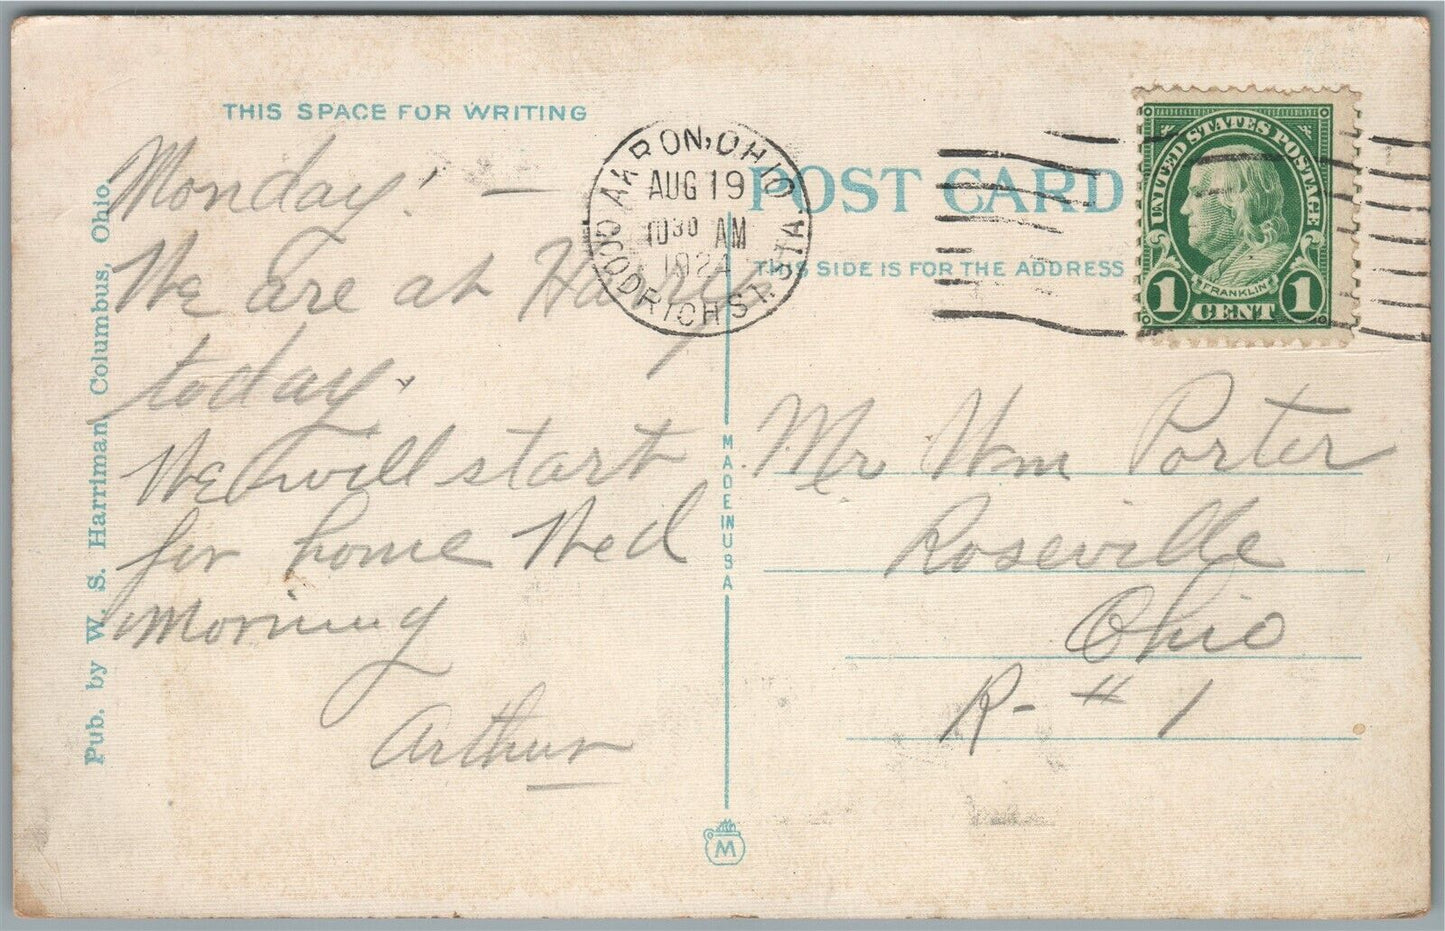 THIS SPACE FOR WRITING
Monday! —
We are at Harrys
today.
We will start
for home Wed
Morning
Arthur
Pub. by W. S. Harriman, Columbus, Ohio.
AKRON, OHIO
GOODRICH ST. STA.
AUG 19
10 30 AM
1924
POST CARD
THIS SIDE IS FOR THE ADDRESS
UNITED STATES POSTAGE
FRANKLIN
1 CENT 1
MADE IN USA
Mr Wm Porter
Roseville
Ohio
R- # 1
M